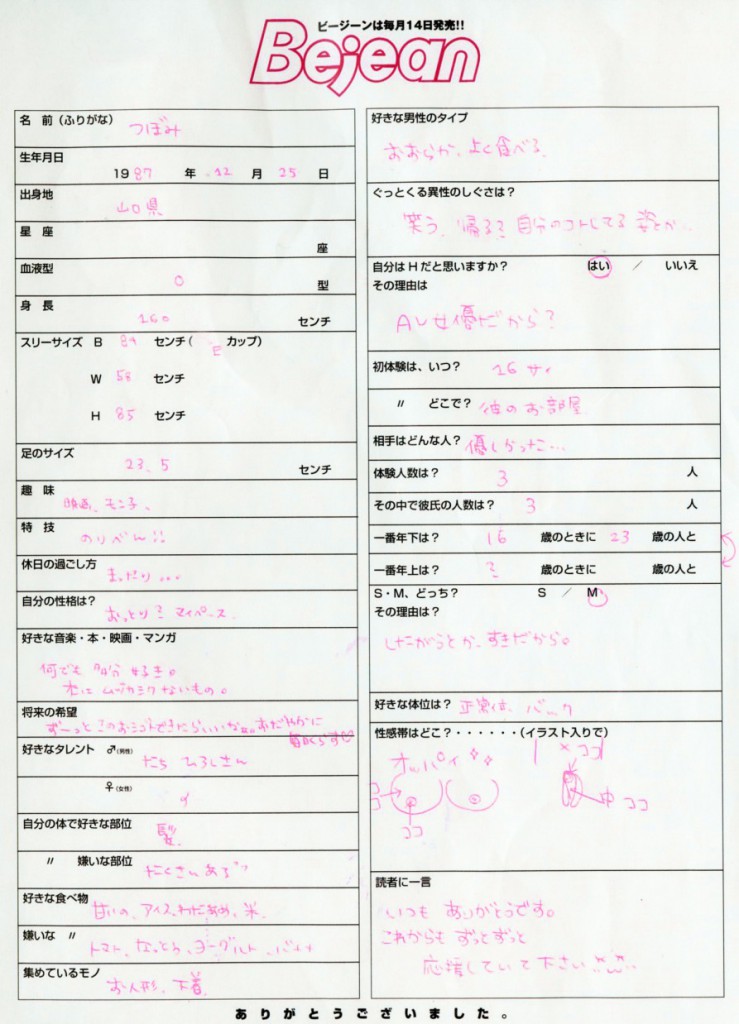 ビージーンは毎月14日発売!!
Bejean
名 前(ふりがな) つぼみ
生年月日
1987 年 12 月 25 日
出身地 山口県
星 座 座
血液型 O 型
身 長 160 センチ
スリーサイズ B 84 センチ( E カップ)
W 58 センチ
H 85 センチ
足のサイズ 23.5 センチ
趣 味 映画、
特 技 のりべん!!
休日の過ごし方 まったり…
自分の性格は? おっとり? マイペース
好きな音楽・本・映画・マンガ
何でも 多分 好き。
本は ムヅカシクないもの。
将来の希望
ずーっと このおシゴトできたらいいな。おだやかに
毎日くらす♡
好きなタレント ♂(男性) たち ひろしさん
♀(女性)
自分の体で好きな部位 髪
〃 嫌いな部位 たくさんある
好きな食べ物 甘いの、アイス、わたあめ、米
嫌いな 〃 トマト、なっとう、ヨーグルト、バナナ
集めているモノ お人形、下着
好きな男性のタイプ
おおらか、よく食べる
ぐっとくる異性のしぐさは?
笑う、帰る? 自分のコトしてる 姿とか…
自分はHだと思いますか? はい / いいえ
その理由は
AV女優だから?
初体験は、いつ? 16サイ
〃 どこで? 彼のお部屋
相手はどんな人? 優しかった…
体験人数は? 3 人
その中で彼氏の人数は? 3 人
一番年下は? 16 歳のときに 23 歳の人と
一番年上は? ? 歳のときに 歳の人と
S・M、どっち? S / M
その理由は?
したがうとか、すきだから。
好きな体位は? 正常位、バック
性感帯はどこ?・・・・・・(イラスト入りで)
オッパイ
×ココ
ココ
中 ココ
読者に一言
いつも ありがとうです。
これからも ずっとずっと
応援していて下さい
ありがとうございました。